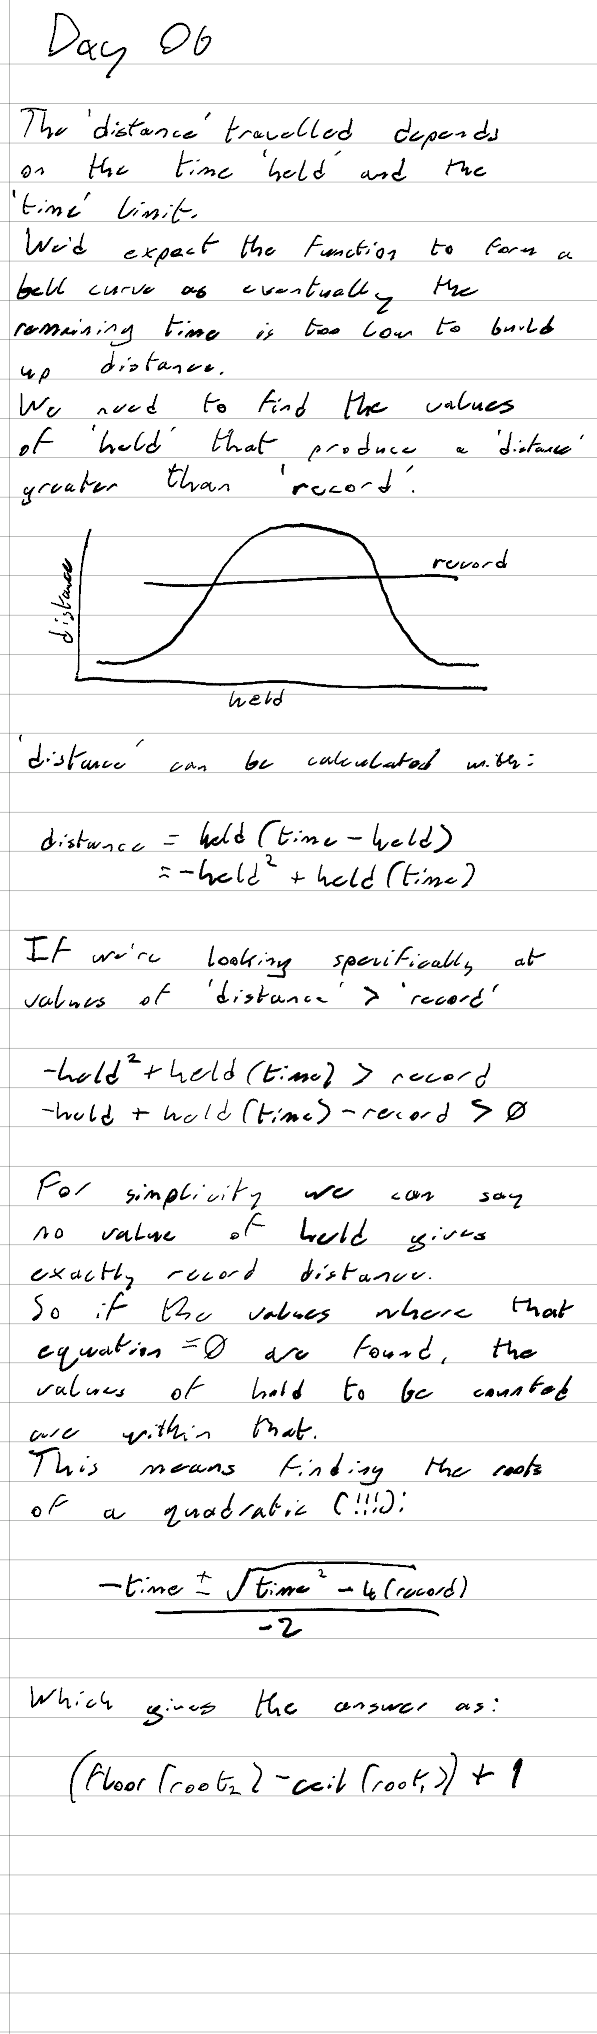 Day 06
The 'distance' travelled depends
on the time 'held' and the
'time' limit.
We'd expect the function to form a
bell curve as eventually the
remaining time is too low to build
up distance.
We need to find the values
of 'held' that produce a 'distance'
greater than 'record'.
record
distance
held
'distance' can be calculated with:
distance = held (time - held)
= -held² + held (time)
If we're looking specifically at
values of 'distance' > 'record'
-held² + held (time) > record
-held + held (time) - record > 0
For simplicity we can say
no value of held gives
exactly record distance.
So if the values where that
equation = 0 are found, the
values of held to be counted
are within that.
This means finding the roots
of a quadratic (!!!):
-time ± √time² - 4(record)
-2
Which gives the answer as:
(floor(root₂) - ceil(root₁)) + 1